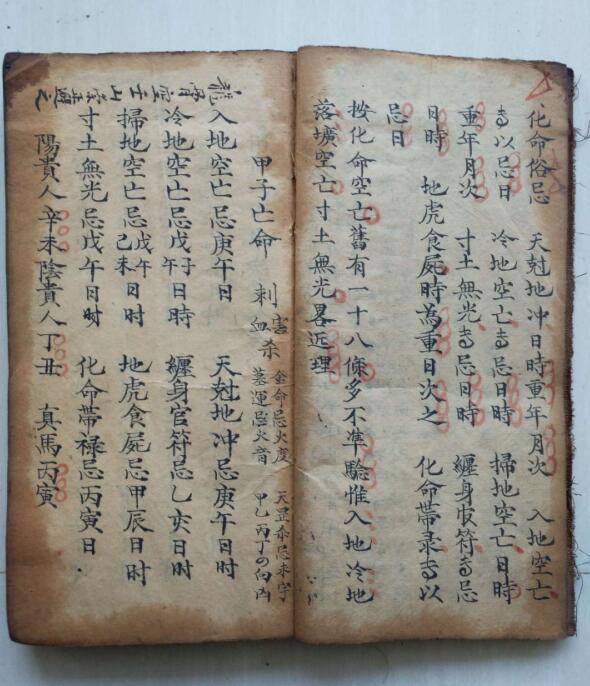 化命俗忌 天尅地冲日時重年月次 入地空亡
忌以忌日 冷地空亡忌日時 掃地空亡日時
重年月次 寸土無光忌日時 纏身官符忌
日時 地虎食屍時為重日次之 化命帶录以
忌日
按化命空亡舊有一十八條多不準驗惟入地冷地
落壙空亡寸土無光畧近理
甲子亡命 刺害血杀 金命忌火度 墓運忌火音 天罡杀忌未字 甲乙丙丁向凶
入地空亡忌庚午日 天尅地冲忌庚午日時
冷地空亡忌戊子午日時 纏身官符忌乙亥日时
掃地空亡忌戊午己未日时 地虎食屍忌甲辰日时
寸土無光忌戊午日时 化命帶禄忌丙寅日
陽貴人辛未陰貴人丁丑 真馬丙寅